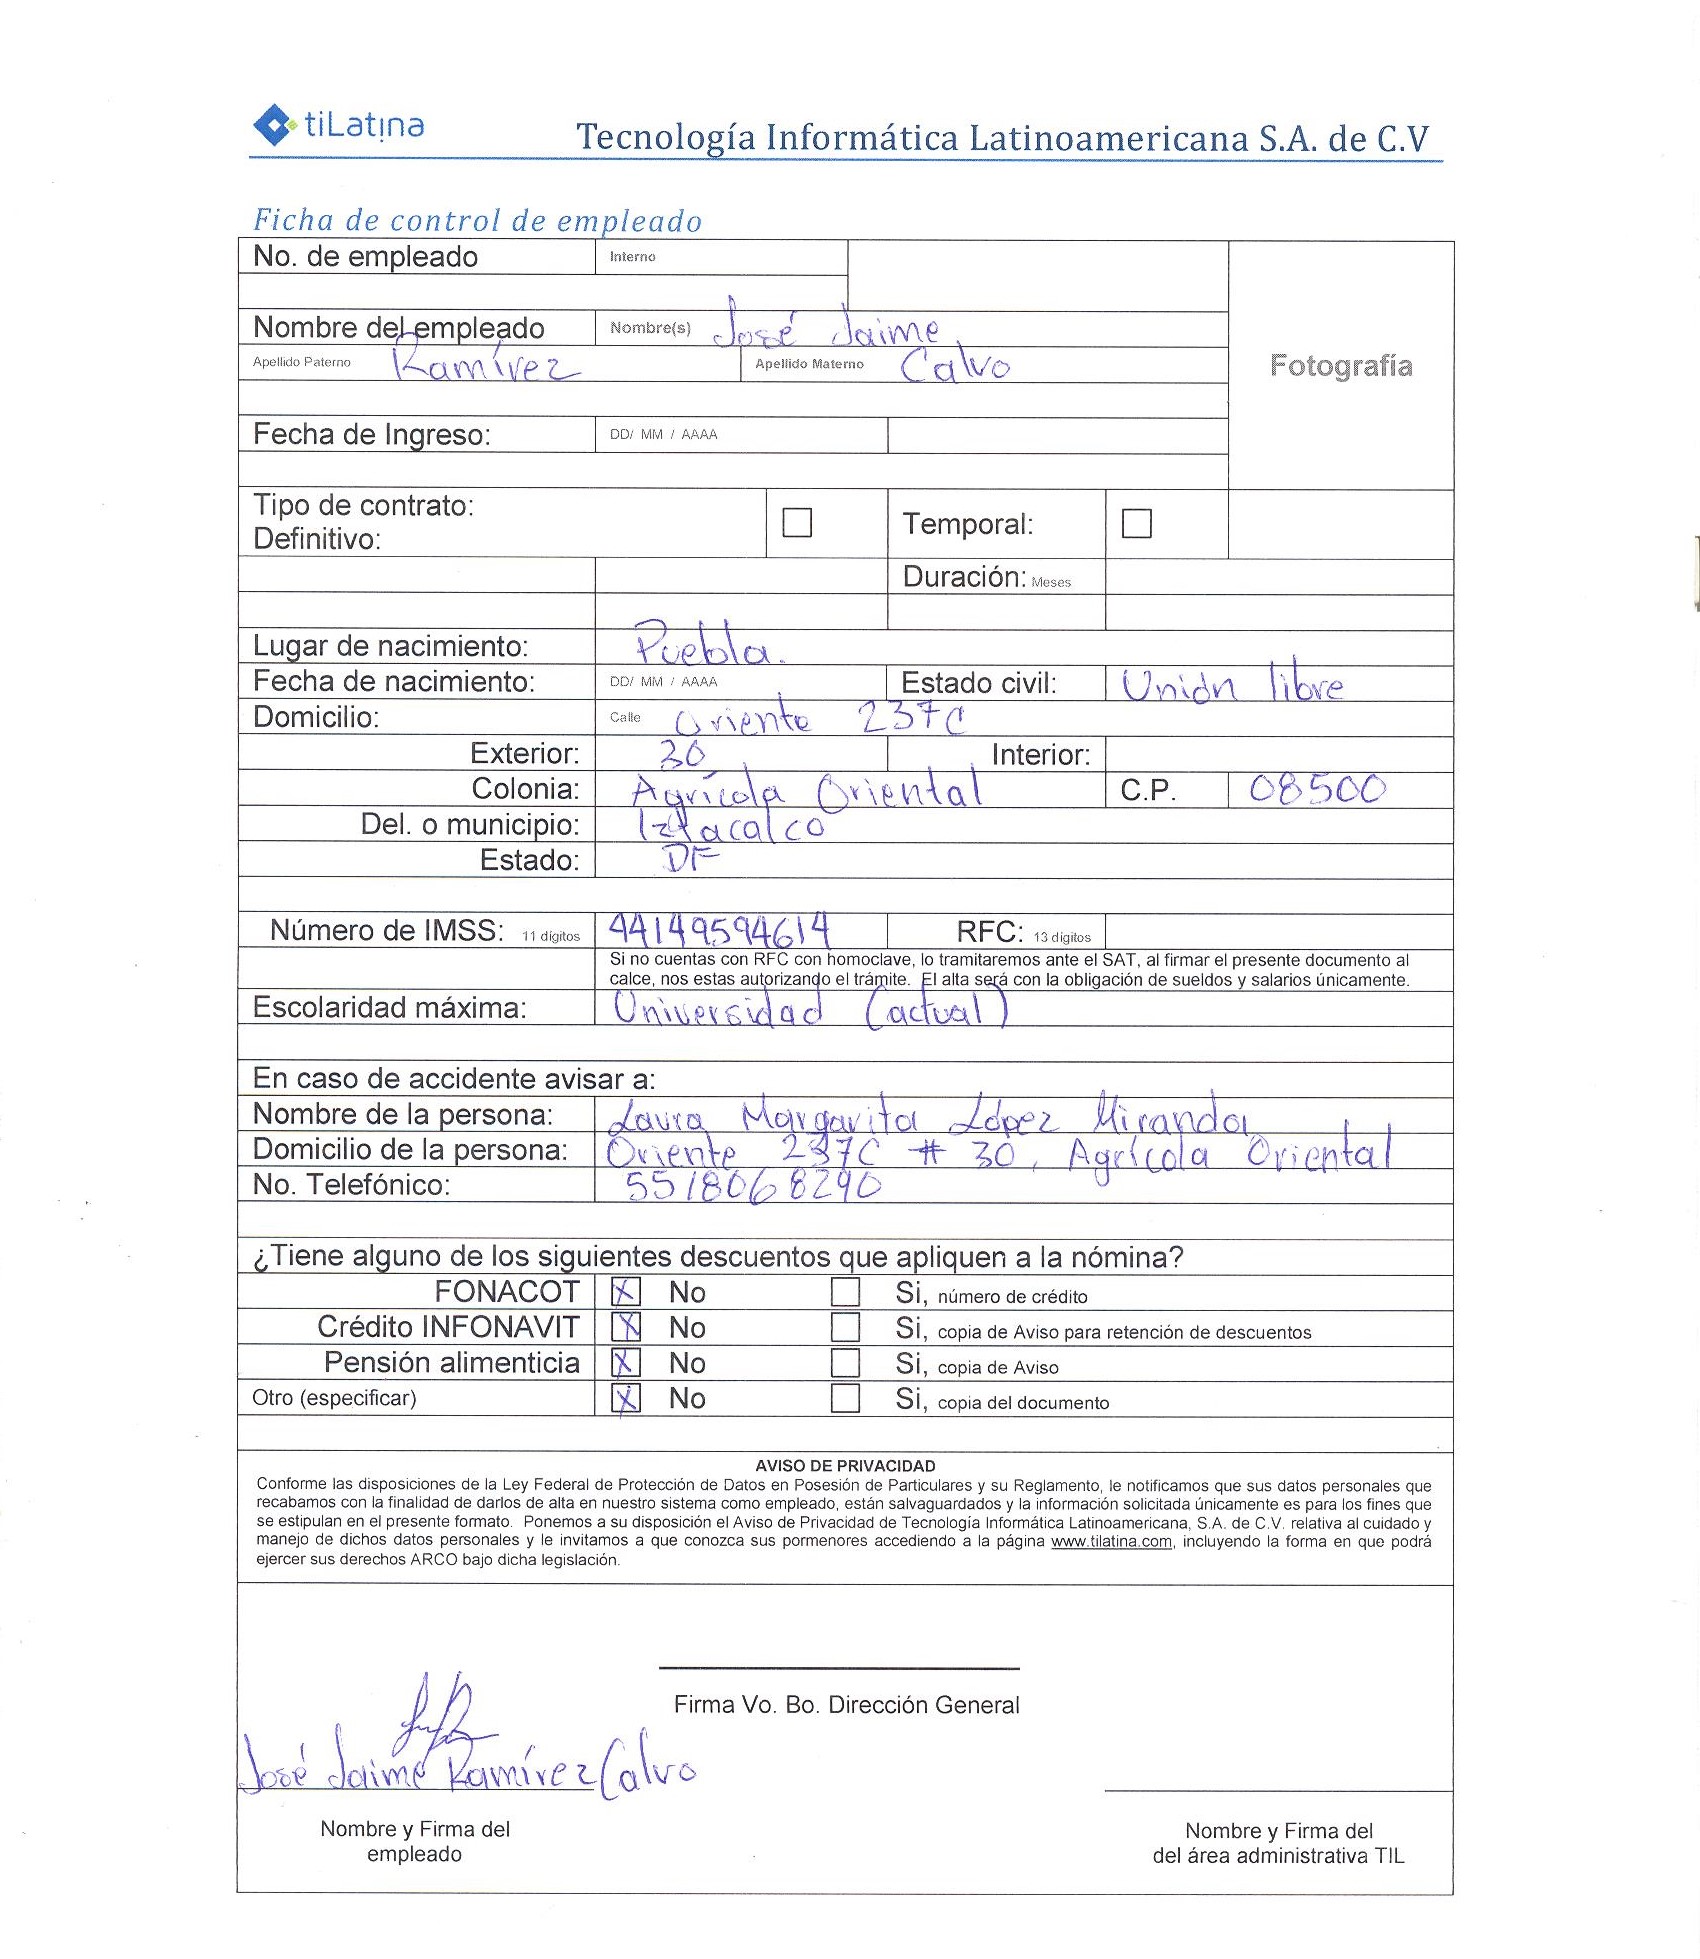 tiLatina
Tecnología Informática Latinoamericana S.A. de C.V
Ficha de control de empleado
No. de empleado Interno
Nombre del empleado Nombre(s) José Jaime
Apellido Paterno Ramírez Apellido Materno Calvo
Fotografía
Fecha de Ingreso: DD/ MM / AAAA
Tipo de contrato:
Definitivo: Temporal:
Duración: Meses
Lugar de nacimiento: Puebla.
Fecha de nacimiento: DD/ MM / AAAA Estado civil: Unión libre
Domicilio: Calle Oriente 237C
Exterior: 30 Interior:
Colonia: Agrícola Oriental C.P. 08500
Del. o municipio: Iztacalco
Estado: DF
Número de IMSS: 11 dígitos 44149594614 RFC: 13 dígitos
Si no cuentas con RFC con homoclave, lo tramitaremos ante el SAT, al firmar el presente documento al
calce, nos estas autorizando el trámite. El alta será con la obligación de sueldos y salarios únicamente.
Escolaridad máxima: Universidad (actual)
En caso de accidente avisar a:
Nombre de la persona: Laura Margarita López Miranda
Domicilio de la persona: Oriente 237C # 30, Agrícola Oriental
No. Telefónico: 5518068290
¿Tiene alguno de los siguientes descuentos que apliquen a la nómina?
FONACOT X No Si, número de crédito
Crédito INFONAVIT X No Si, copia de Aviso para retención de descuentos
Pensión alimenticia X No Si, copia de Aviso
Otro (especificar) X No Si, copia del documento
AVISO DE PRIVACIDAD
Conforme las disposiciones de la Ley Federal de Protección de Datos en Posesión de Particulares y su Reglamento, le notificamos que sus datos personales que
recabamos con la finalidad de darlos de alta en nuestro sistema como empleado, están salvaguardados y la información solicitada únicamente es para los fines que
se estipulan en el presente formato. Ponemos a su disposición el Aviso de Privacidad de Tecnología Informática Latinoamericana, S.A. de C.V. relativa al cuidado y
manejo de dichos datos personales y le invitamos a que conozca sus pormenores accediendo a la página www.tilatina.com, incluyendo la forma en que podrá
ejercer sus derechos ARCO bajo dicha legislación.
Firma Vo. Bo. Dirección General
José Jaime Ramírez Calvo
Nombre y Firma del
empleado
Nombre y Firma del
del área administrativa TIL